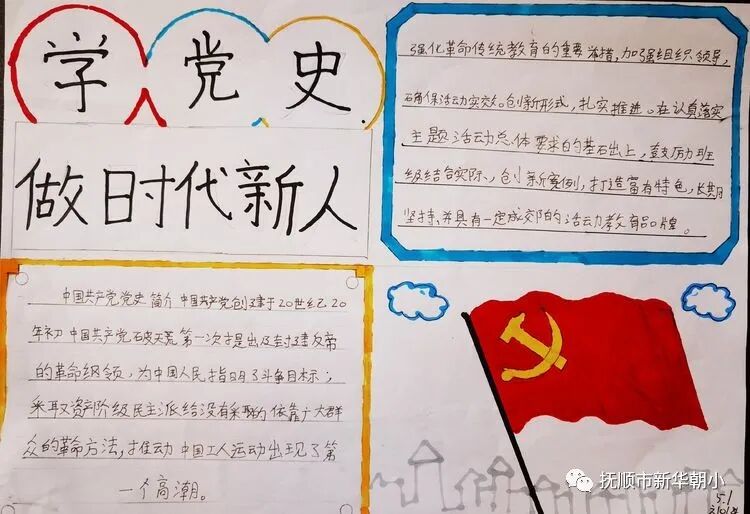 学党史
做时代新人
强化革命传统教育的重要举措,加强组织领导,
确保活动实效。创新形式,扎实推进。在认真落实
主题活动总体要求的基石出上,鼓励班
级结合实际、创新案例,打造富有特色,长期
坚持、并具有一定成效的活动教育品牌。
中国共产党党史简介 中国共产党创建于20世纪20
年初 中国共产党破天荒第一次提出反封建反帝
的革命纲领,为中国人民指明了斗争目标;
采取资产阶级民主派给没有采取的依靠广大群
众的革命方法,推动中国工人运动出现了第
一个高潮。
抚顺市新华朝小
5.1